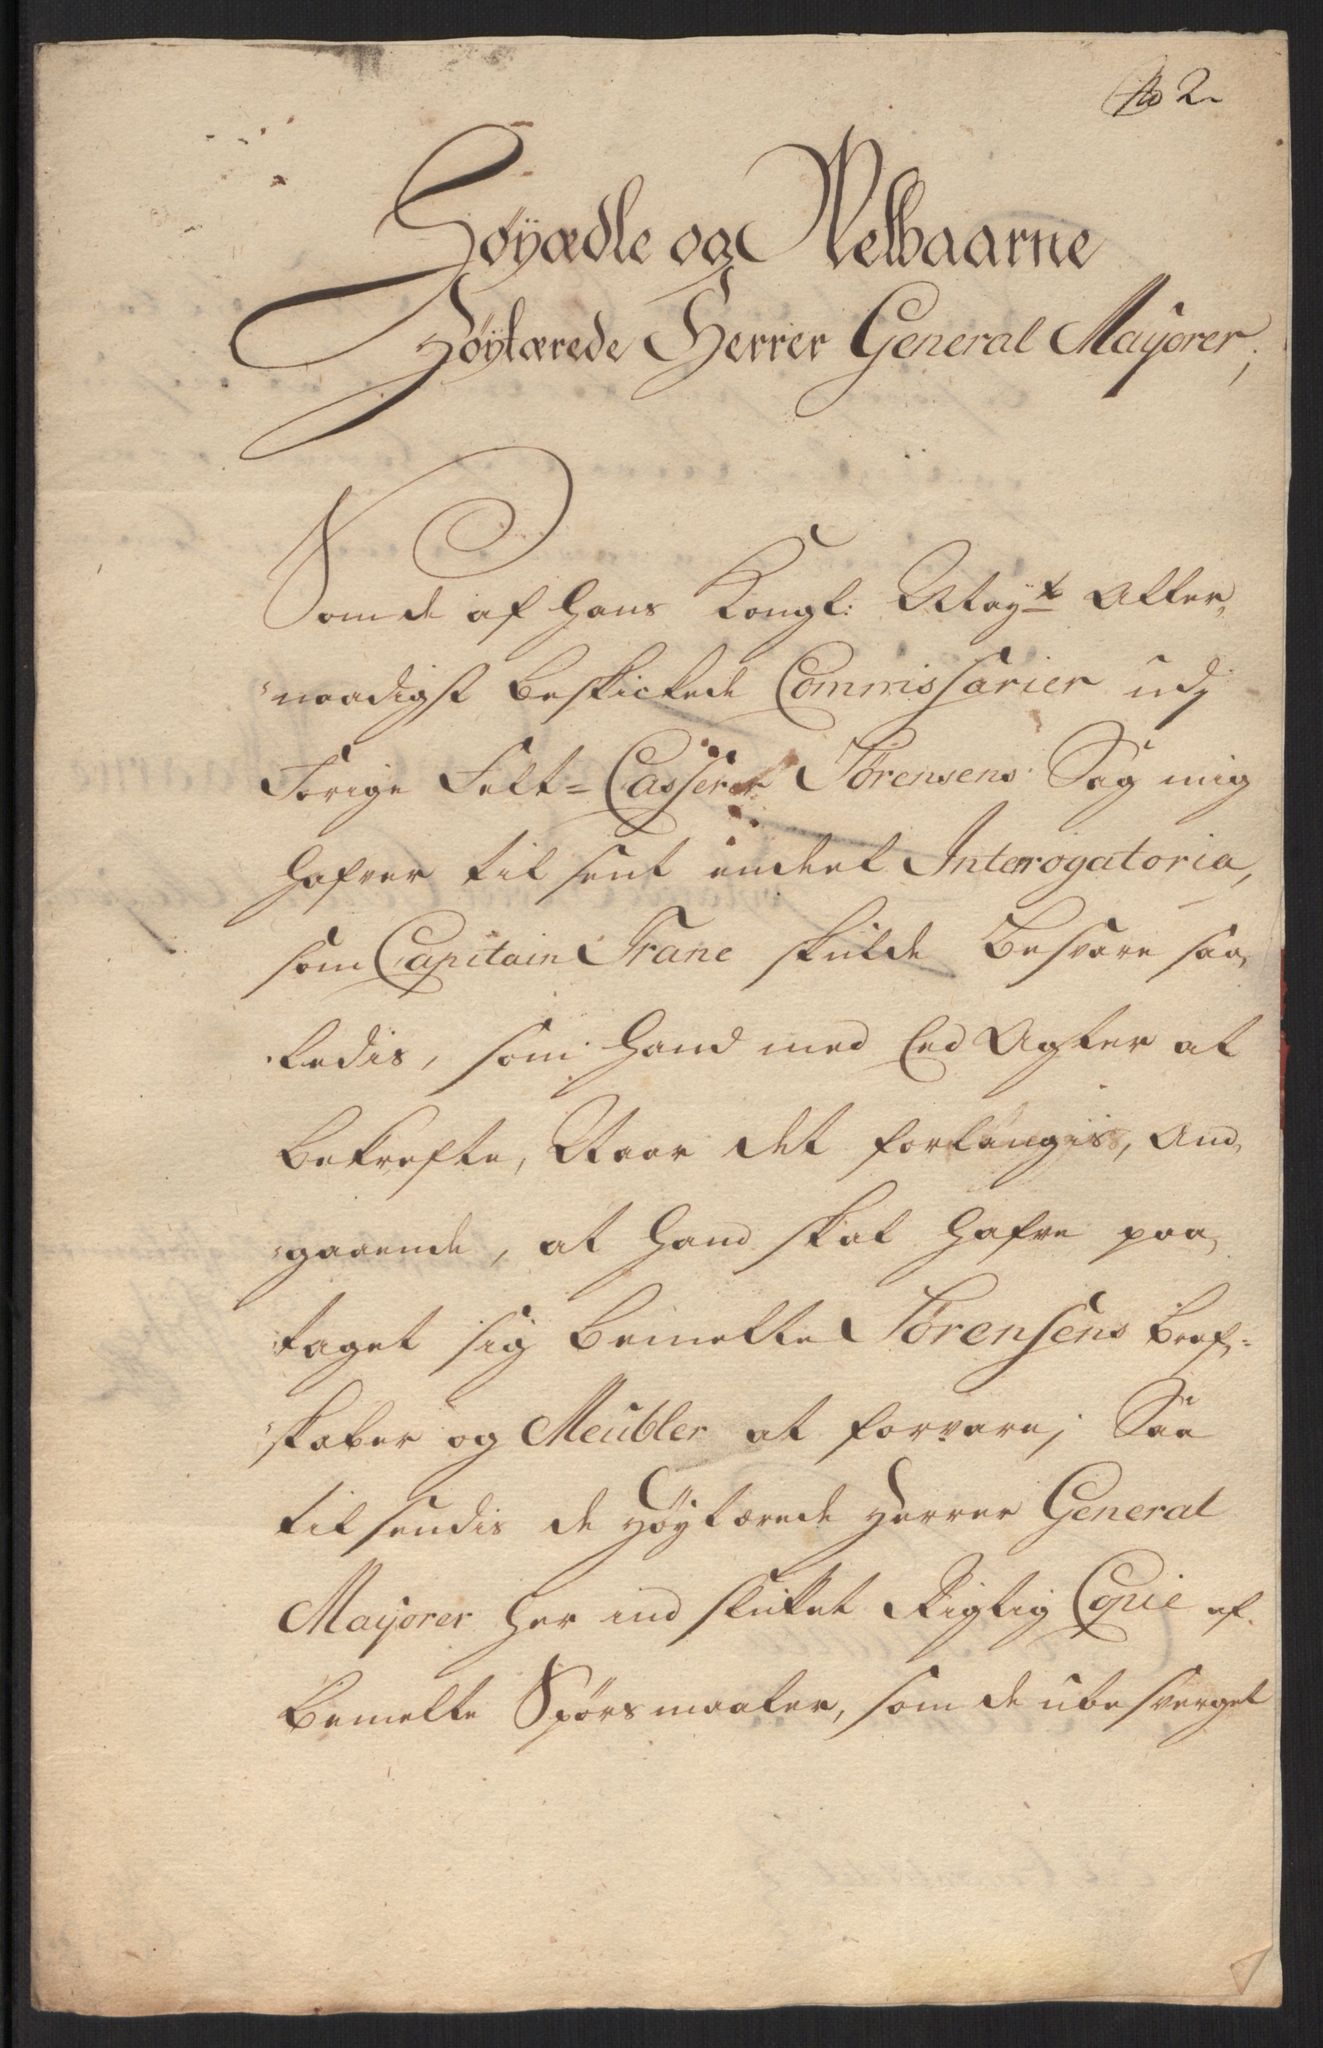 No 2.
Høyædle og Velbaarne
Høytærede Herrer General Mayorer,
Som de af Hans Kongl: May:t Aller„
„naadigst beskickede Commissarier udj
Forige Felt=Casserer Sørensens Sag mig
hafver tilsent endeel Interogatoria,
som Capitain Trane skulde besvare saa„
„ledis, som hand med Eed Agter at
bekrefte, Naar det forlangis, An„
„gaaende, at hand skal hafve paa„
taget sig bemelte Sørensens bref„
„skaber og Meubler at forvare; Saa
tilsendis de Høytærede Herrer General
Mayorer her indsluttet Rigtig Copie af
bemelte Spørsmaaler, som de ubesverget